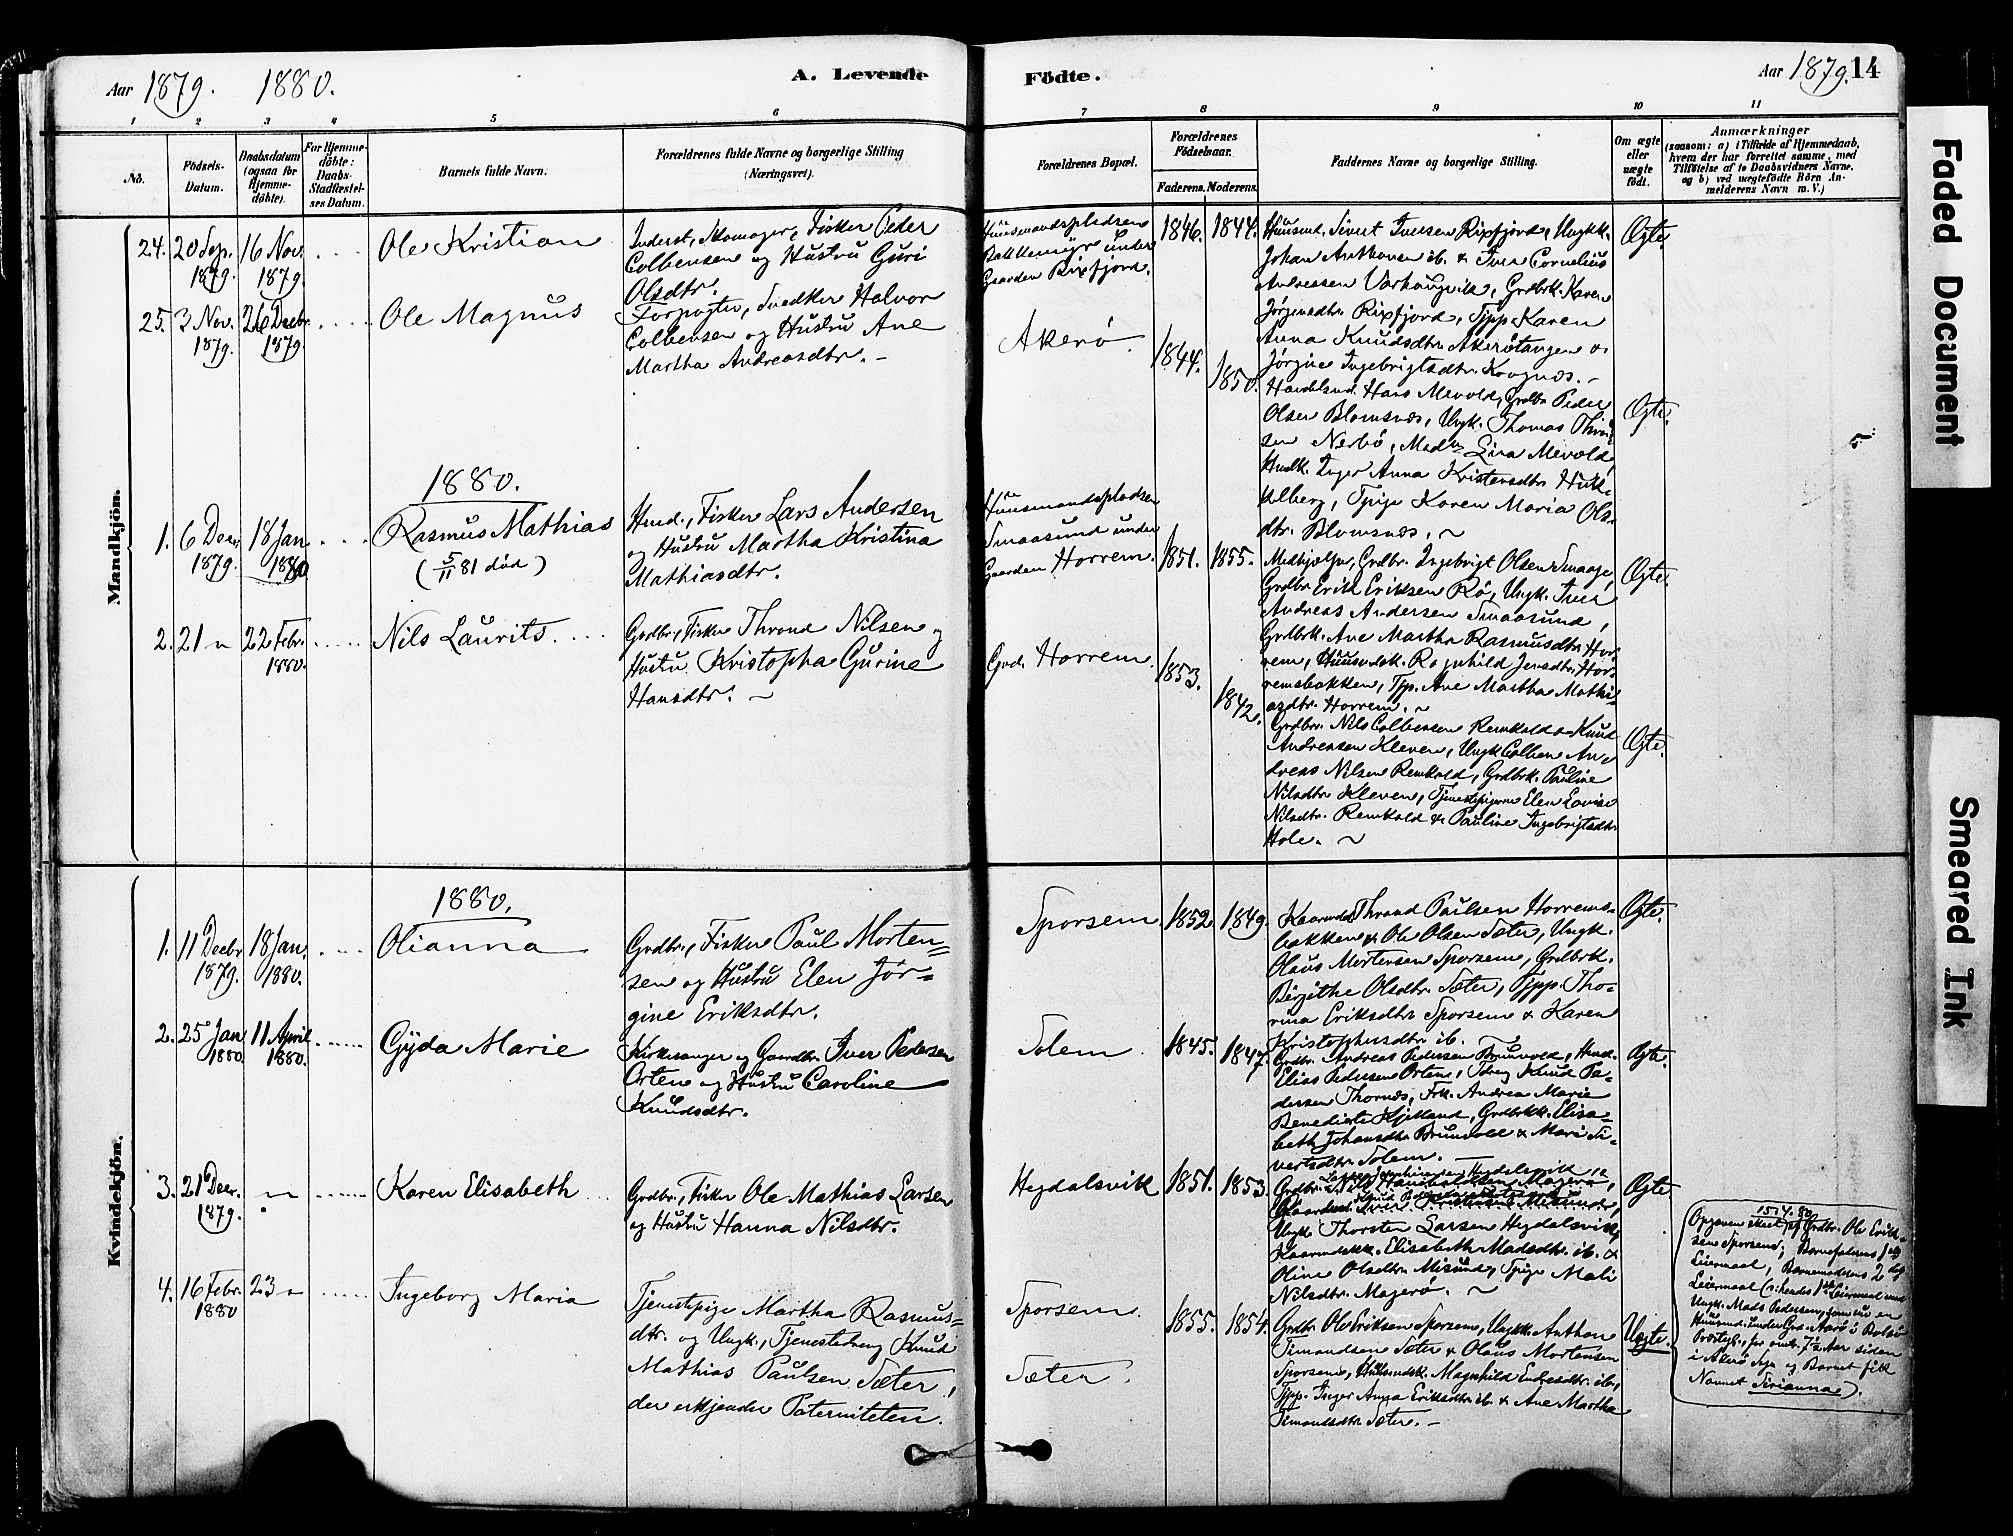 Aar 1879. 1880.
A. Levende
Födte.
Aar 1879. 14
1 2 3 4 5 6 7 8 9 10 11
No.
Födsels-Datum.
Daabsdatum (ogsaa for Hjemme-döbte).
For Hjemme-döbte: Daabs-Stadfæstel-ses Datum.
Barnets fulde Navn.
Forældrenes fulde Navne og borgerlige Stilling (Næringsvei).
Forældrenes Bopæl.
Forældrenes Födselsaar.
Faderens. Moderens.
Faddernes Navne og borgerlige Stilling.
Om ægte eller uægte födt.
Anmærkninger
(saasom: a) i Tilfælde af Hjemmedaab,
hvem der har forrettet samme, med
Tilföielse af to Daabsvidners Navne,
og b) ved uægtefödte Börn An-
melderens Navn m. V.)
Mandkjön.
24. 20 Sep. 1879. 16 Nov. 1879. Ole Kristian
Inderst, Skomager, Fisker Peder
Colbensen og Hustru Guri
Olsdtr.
Huusmandspladsen
Bakkemyr under
Gaarden Rixfjord.
1846. 1844.
Huusmd. Sivert Iversen Rixfjord, Ungkk.
Johan Anthonsen ib. & Iver Cornelius
Andreassen Varhaugvik, Grdbrk. Karen
Jørgensdtr. Rixfjord, Tjpp. Karen
Anna Knudsdtr. Akerötangen &
Jørgine Ingebrigtsdtr. Krognæs.
Ægte.
25. 3 Nov. 1879. 26 Decbr. 1879. Ole Magnus
Forpagter, Snedker Halvor
Colbensen og Hustru Ane
Martha Andreasdtr.
Akerö.
1844. 1850.
Handelsmd. Hans Mevold, Grdbr. Peder
Olsen Blomsnæs, Ungk. Thomas Thron-
sen Nerbö, Madm Lina Mevold,
Husdk. Inger Anna Kristensdtr. Huk-
kelberg, Tpige Karen Maria Ols-
dtr. Blomsnæs.
Ægte.
1880.
1. 6 Decr. 1879. 18 Jan. 1880 Rasmus Mathias
(5/11 81 död)
Husmd., Fisker Lars Andersen
og Hustru Martha Kristina
Mathiasdtr.
Huusmandspladsen
Smaasund under
Gaarden Horrem.
1851. 1855.
Medhjælper, Grdbr. Ingebrigt Olsen Smaage,
Grdbr. Erik Eriksen Rö, Ungk. Iver
Andreas Andersen Smaasund,
Grdbrk. Ane Martha Rasmusdtr. Hor-
rem, Huusmdsk. Ragnhild Jensdtr. Hor-
remsbakken, Tjp. Ane Martha Mathi-
asdtr. Horrem.
Ægte.
2. 21 " 22 Febr. 1880. Nils Laurits.
Grdbr., Fisker Thrond Nilsen og
Hustru Kristopha Gurine
Hansdtr.
Grd. Horrem.
1853. 1842.
Grdbr. Nils Colbensen Remkold & Knud
Andreassen Kleven, Ungk. Colben An-
dreas Nilsen Remkold, Grdbrk. Pauline
Nilsdtr. Kleven, Tjenestepigerne Elen Lovise
Nilsdtr. Remkold & Pauline Ingebrigtsdtr.
Hole.
Ægte.
Kvindekjön.
1880.
1. 11 Decbr. 1879. 18 Jan. 1880. Olianna
Grdbr., Fisker Paul Morten-
sen og Hustru Elen Jør-
gine Eriksdtr.
Sporsem
1852 1849.
Kaarmd. Thrond Paulsen Horrems-
bakken & Ole Olsen Sæter, Ungk.
Olaus Mortensen Sporsem, Grdbrk.
Birgithe Olsdtr. Sæter, Tjpp. Tho-
rina Eriksdtr. Sporsem & Karen
Kristophersdtr. ib.
Ægte.
2. 25 Jan 1880. 11 April 1880. Gyda Marie
Kirkesanger og Gaardbr. Iver Pedersen
Orten og Hustru Caroline
Knudsdtr.
Solem.
1845. 1847.
Grdbr. Andreas Pedersen Brunvold, Husmd.
Elias Pedersen Orten, Tdreng Knud Pe-
dersen Thornæs, Frk. Andrea Marie
Benedicte Kjelland, Grdbrkk. Elisa-
beth Johansdtr. Brunvold & Mari Si-
vertsdtr. Solem.
Ægte.
3. 21 Decr. 1879. " Karen Elisabeth
Grdbr., Fisker Ole Mathias Larsen
og Hustru Hanna Nilsdtr.
Hegdalsvik
1851. 1853.
Ungk. Thorsten Larsen Hegdalsvik,
Kaarmdskk. Elisabeth Madsdtr. ib. &
Oline Olsdtr. Misund, Tpige Mali
Nilsdtr. Magerö.
Ægte.
4. 16 Febr. 1880 23 " Ingeborg Maria
Tjenestepige Martha Rasmus-
dtr. og Ungk., Tjenestedreng Knud
Mathias Paulsen Sæter,
der erkjender Paterniteten.
Sporsem.
Sæter.
1855. 1854.
Grdbr. Ole Eriksen Sporsem, Ungkk. Anthon
Simondsen Sæter & Olaus Mortensen
Sporsem, Huusmdsk. Magnhild Endresdtr. ib.,
Tjpp. Inger Anna Eriksdtr. ib. & Ane Martha
Simondsdtr. Sæter.
Uægte.
15-4-80.
Opgaven skeet af Grdbr. Ole Erik-
sen Sporsem; Barnefaderens 1ste
Leiermaal, Barnemoderens 2det
Leiermaal (hendes 1ste Leiermaal med
Ungk. Mads Pedersen, som nu er
Huusmd. under Grd. Aarö i Bolsö
Præstegj., for omtr. 7½ Aar siden
i Akerö Sogn og Barnet fik
Navnet Serianna).
Faded Document
Smeared Ink